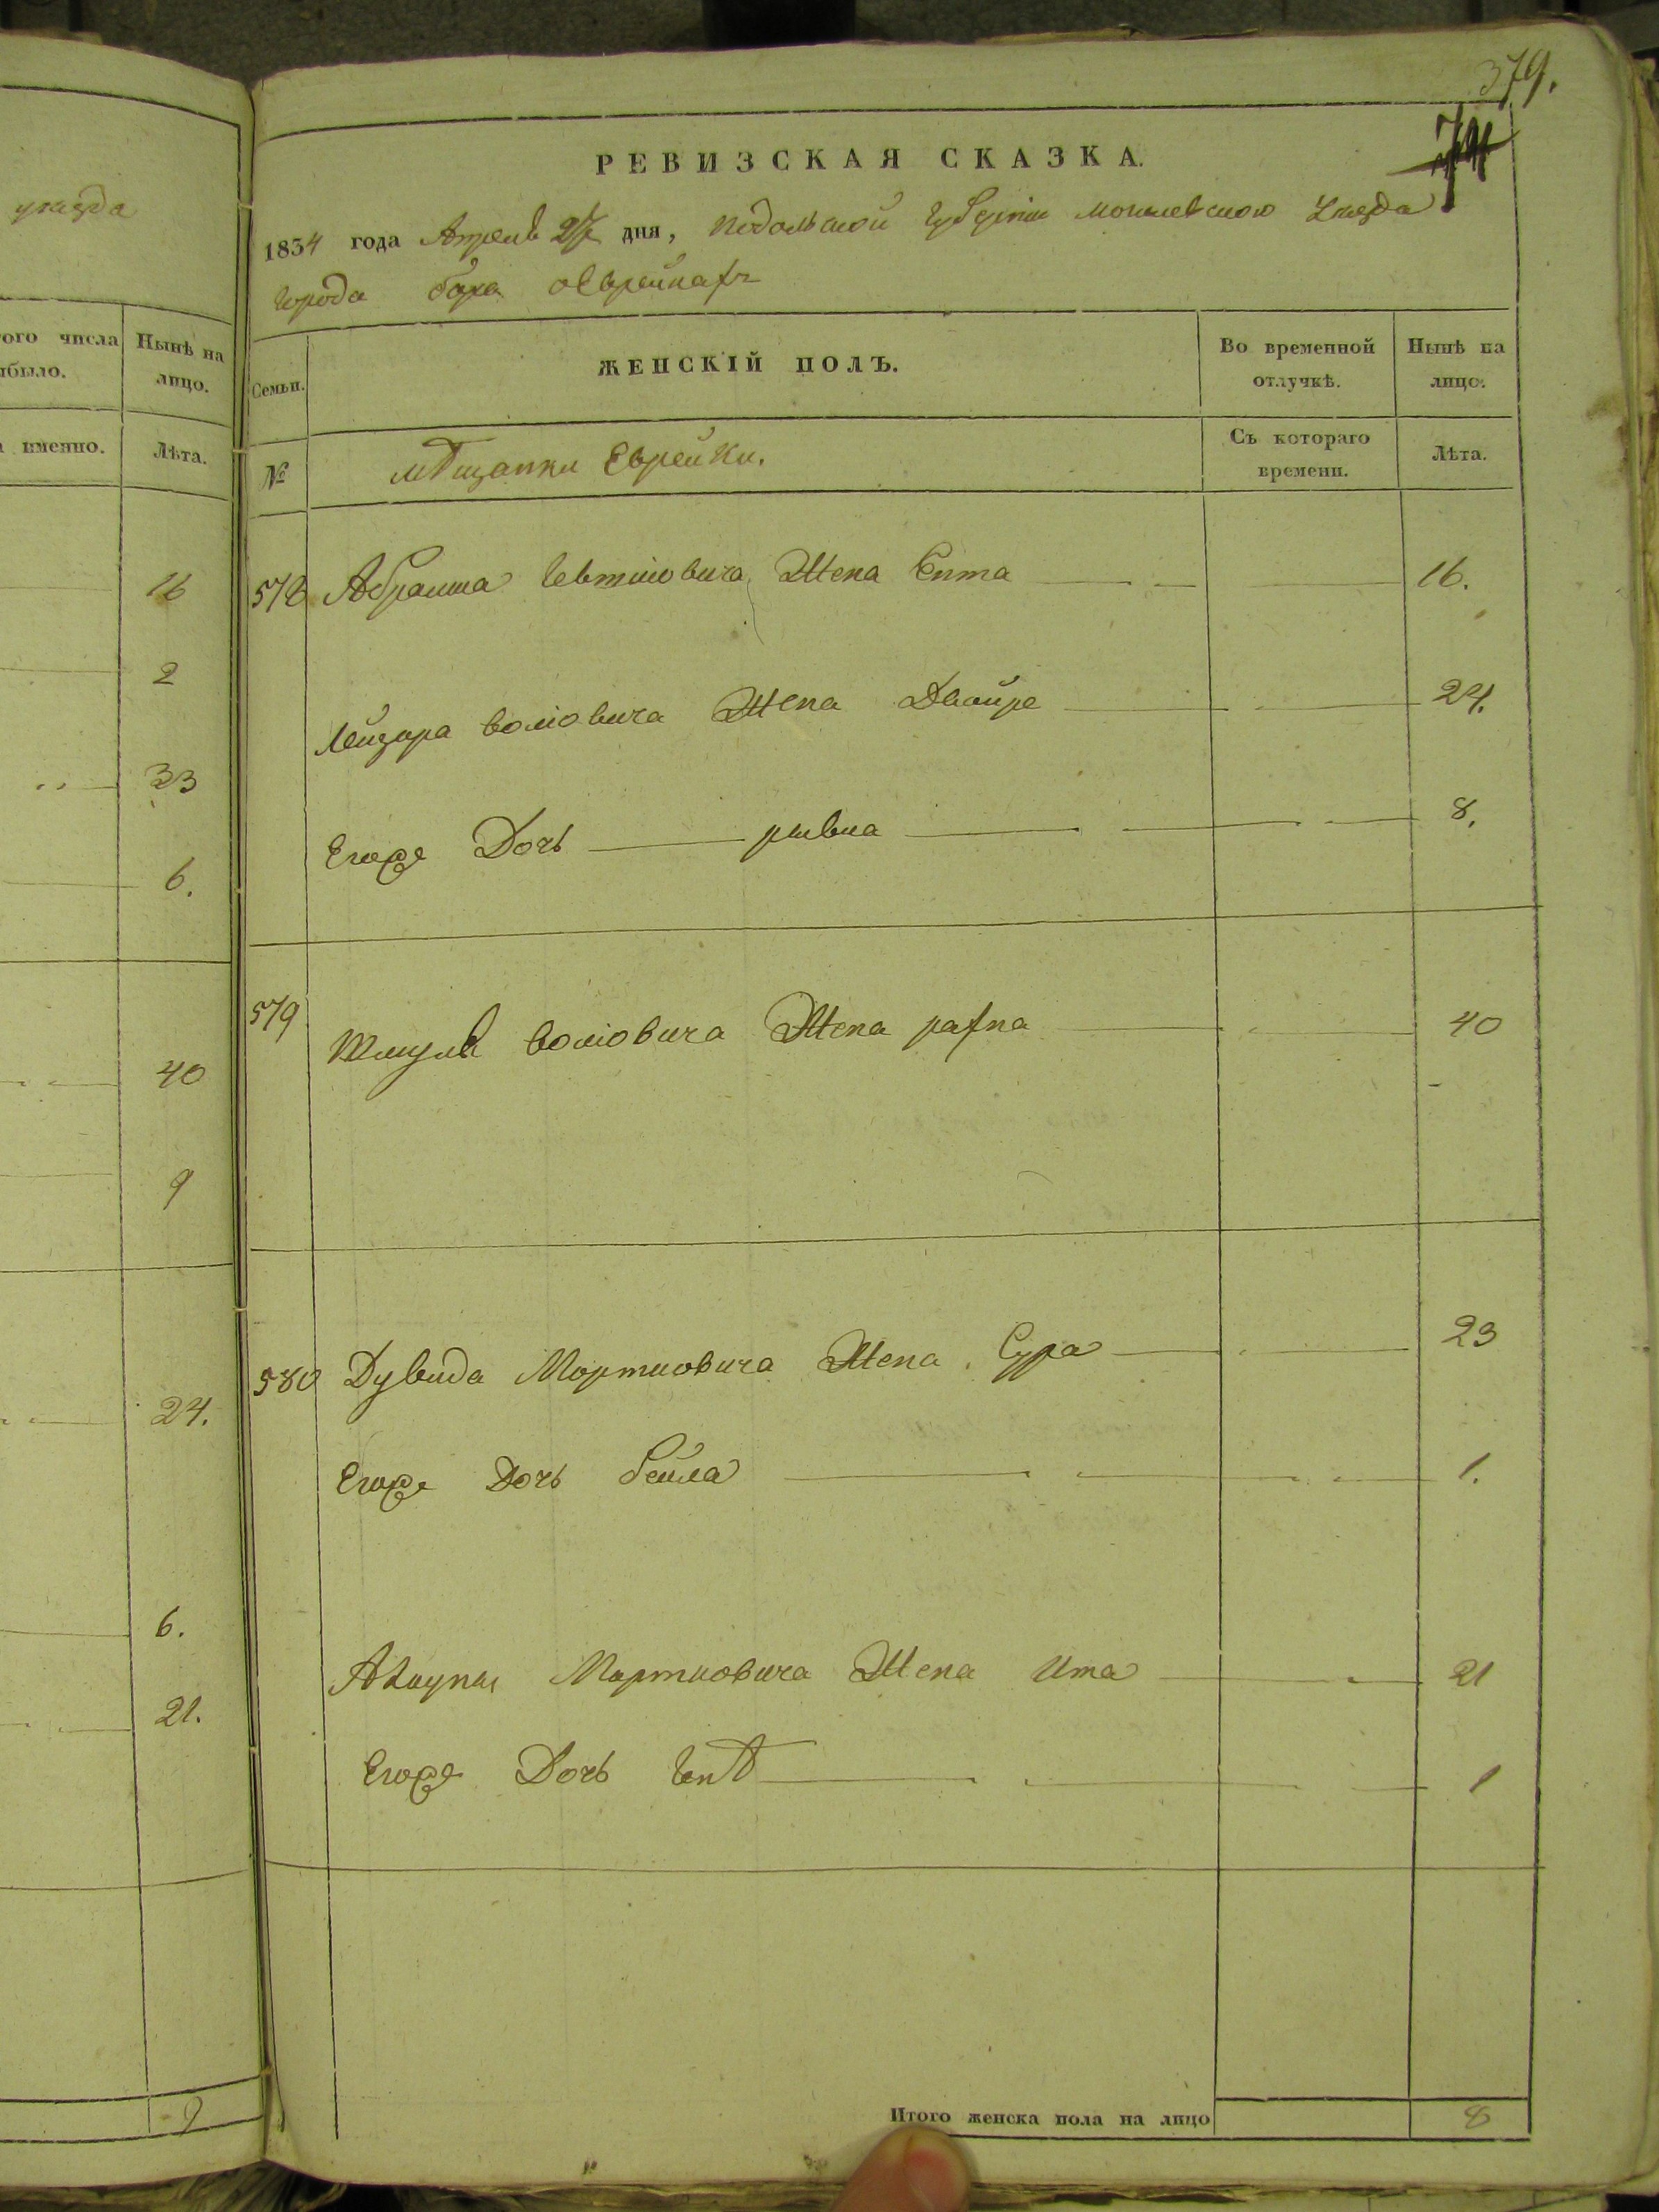 уезда
ого числа
было.
Нынѣ на
лицо.
именно.
Лѣта.
16
2
33
6.
40
9
24.
6.
21.
9
379.
РЕВИЗСКАЯ СКАЗКА.
1834 года Апреля дня, Подольской Губерніи Могилевского Уезда
Города Бара о Еврейкахъ
Семьи. ЖЕНСКІЙ ПОЛЪ. Во временной отлучкѣ. Нынѣ на лицо.
№ мѣщанки Еврейки. Съ котораго времени. Лѣта.
578 Абрамка Жена 16.
Лейзора Волиовича Жена Двойре 24.
Егоже Дочь рывка 8.
579 Шмуля Волиовича Жена рахля 40
580 Дувида Мортковича Жена Сура 23
Егоже Дочь бейла 1.
Мортковича Жена Ита 21
Егоже Дочь 1
Итого женска пола на лицо 8